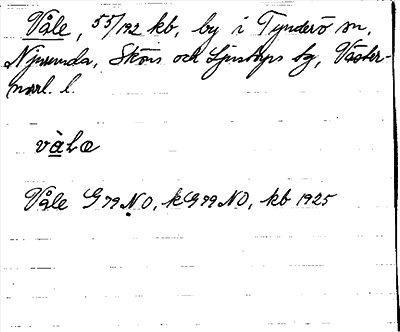 Våle, 55/192 kb, by i Tynderö sn,
Njurunda, Sköns och Ljustorps tg, Väster-
norrl. l.
vàlæ
Våle G79NO, kG79NO, kb 1925